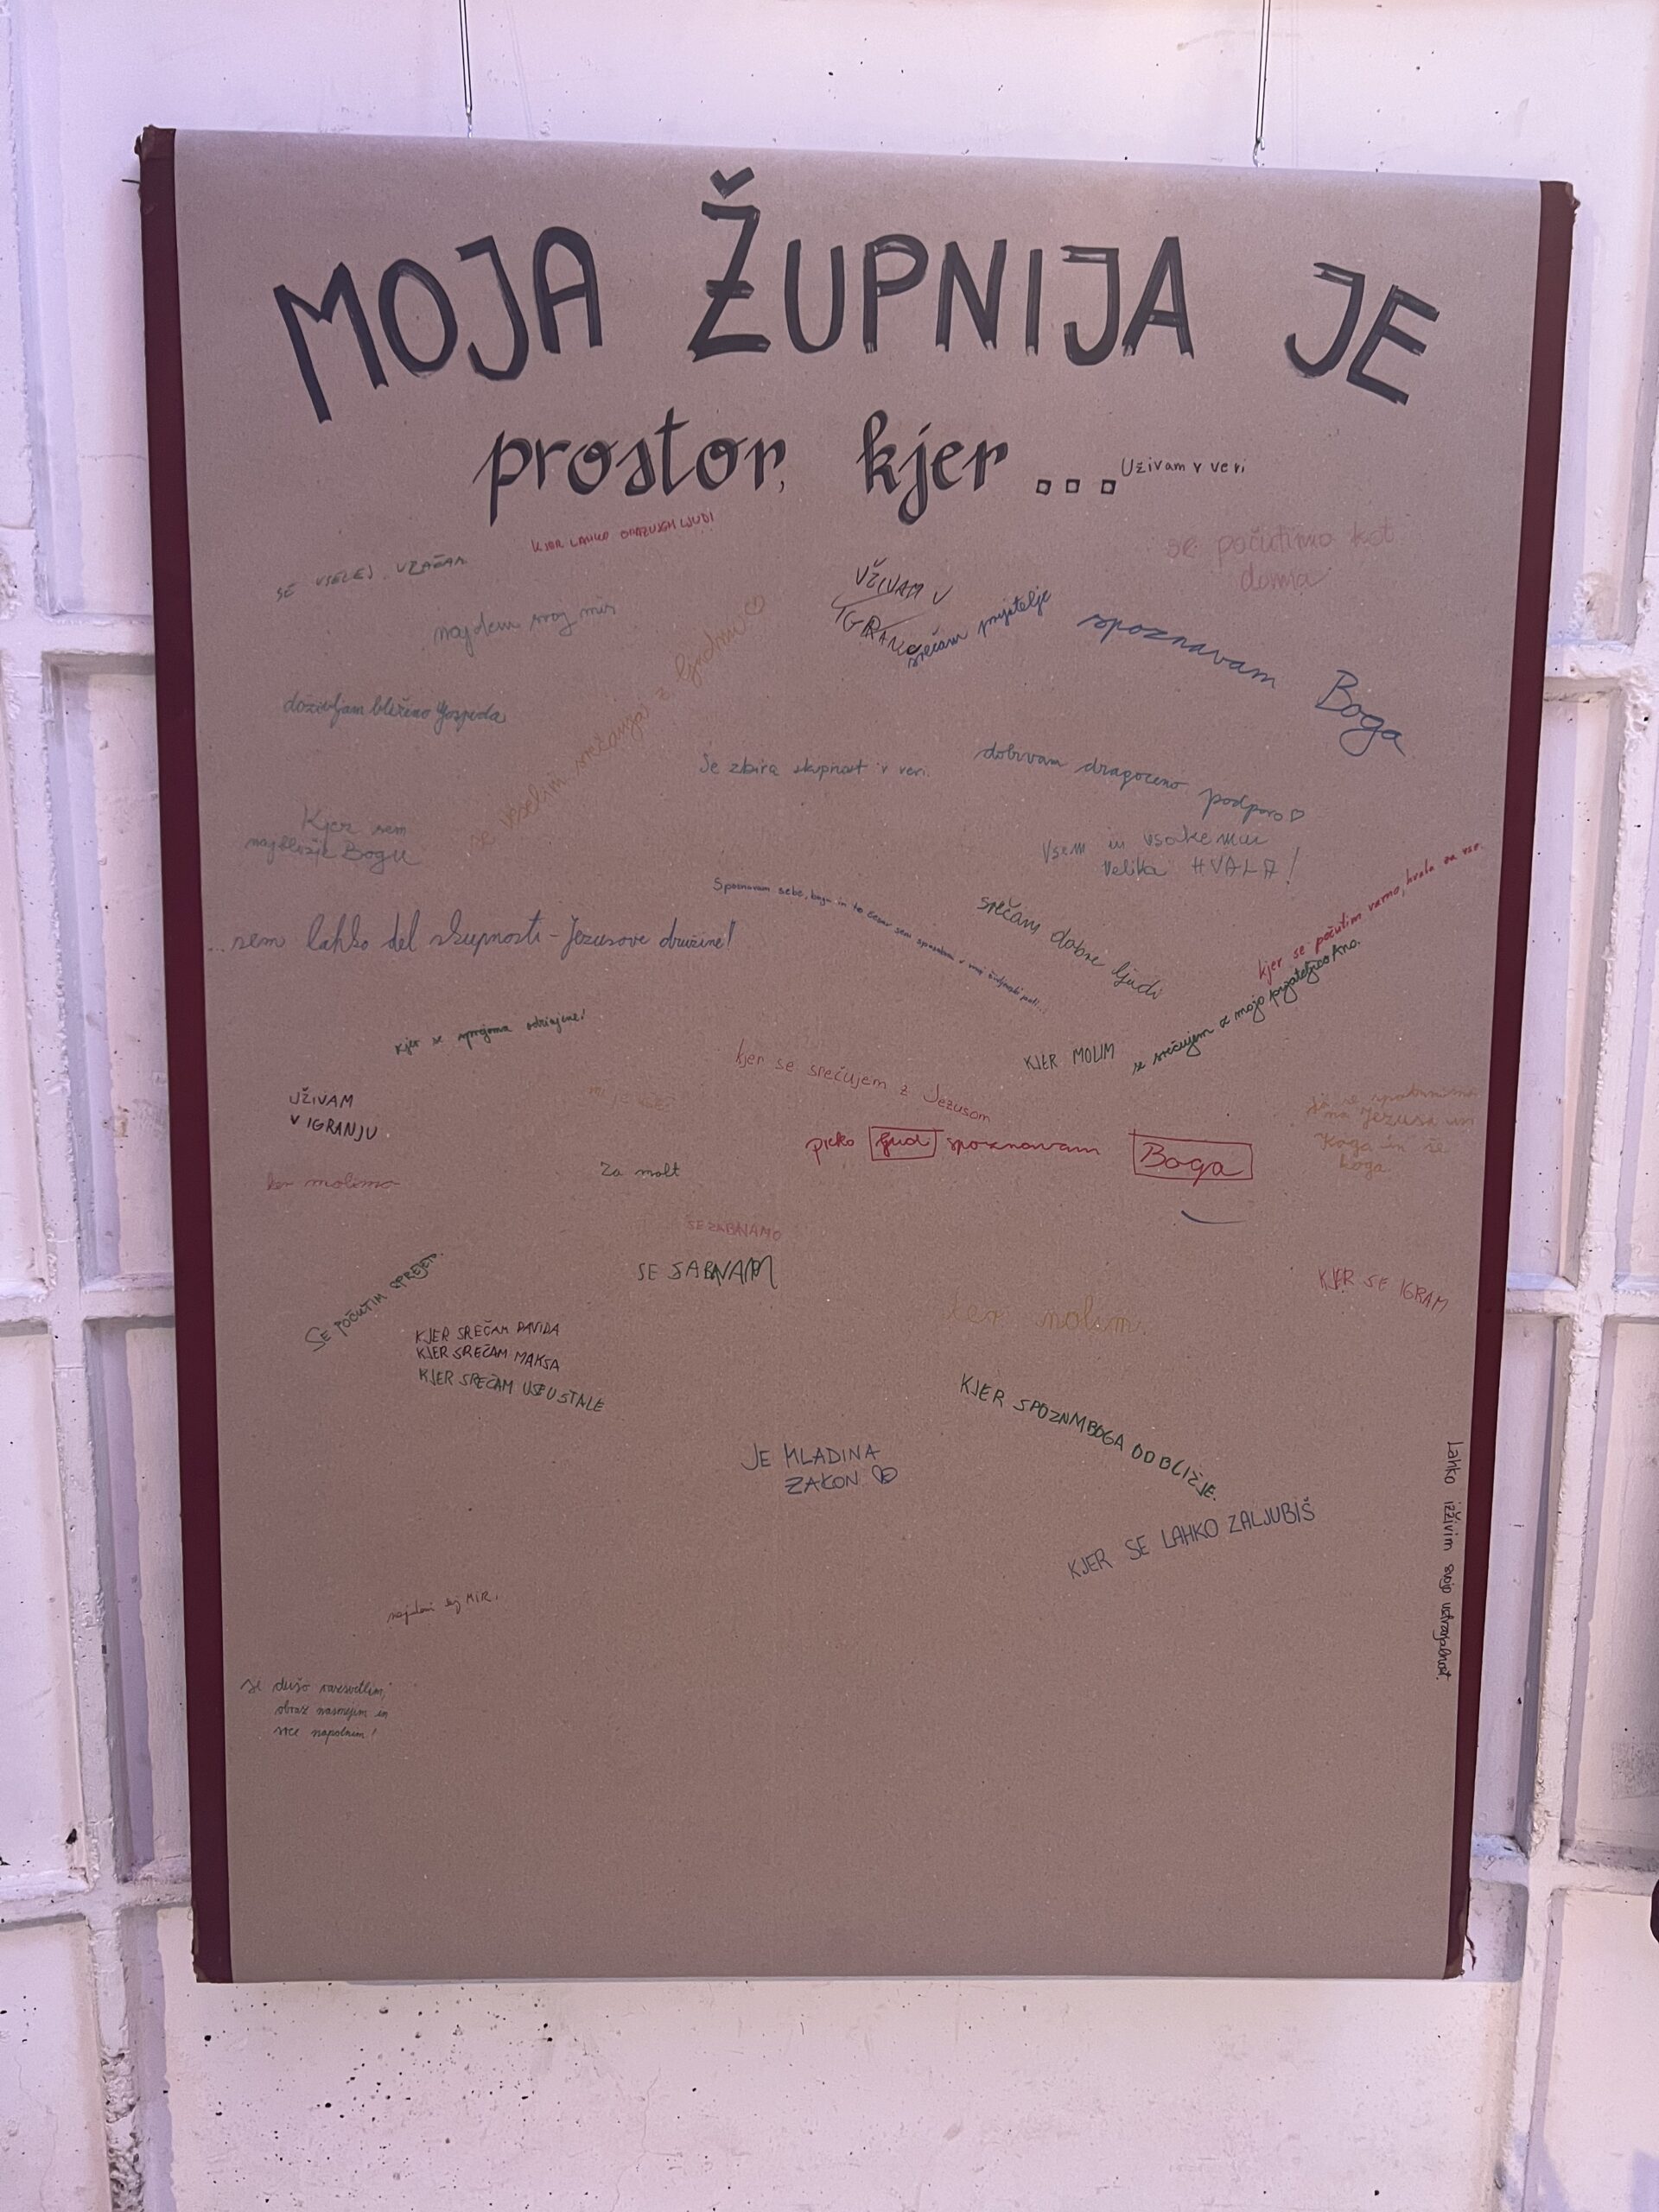 MOJA ŽUPNIJA JE
prostor, kjer ...
Uživam v veri
KJER LAHKO OPAZUJEM LJUDI
SE VSELEJ VRAČAM
se počutimo kot
doma
UŽIVAM V
IGRANJU
srečam prijatelje
najdem svoj mir
spoznavam Boga
doživljam bližino Gospoda
se veselim srečanja z ljudmi
Se zbira skupnost v veri.
dobivam dragoceno podporo
Kjer sem
najbližje Bogu
Vsem in vsakemu
velika HVALA!
Spoznavam sebe, boga in to česar sem sposoben v
srečam dobre ljudi
kjer se počutim varno, hvala za vse.
...sem lahko del skupnosti - Jezusove družine!
se srečujem z mojo prijateljico Ano.
kjer se sprejema odrinjene!
KJER MOLIM
kjer se srečujem z Jezusom
UŽIVAM
V IGRANJU
preko ljudi spoznavam Boga
da se spomnimo
na Jezusa in
koga in še
koga
ker molimo
Za molt
SE ZABAVAMO
SE SABAVAM
KJER SE IGRAM
SE POČUTIM SPREJET.
ker molim.
KJER SREČAM DAVIDA
KJER SREČAM MAKSA
KJER SREČAM VSE USTALE
KJER SPOZNM BOGA OD BLIŽJE.
JE MLADINA
ZAKON
KJER SE LAHKO ZALJUBIŠ
Lahko izživim svojo ustvarjalnost.
najdem svoj MIR.
si dušo razsvetlim,
obraz nasmejim in
srce napolnim!